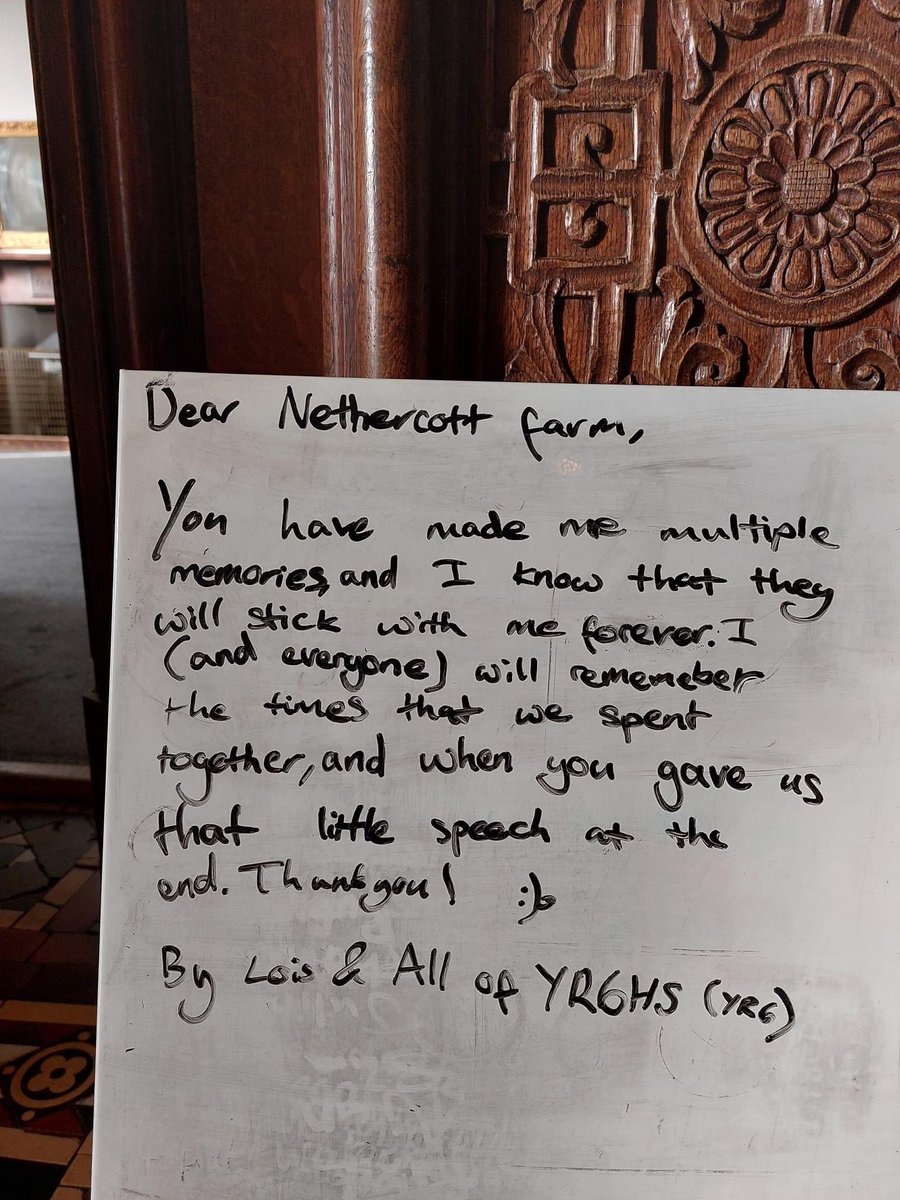 Dear Nethercott farm,
You have made me multiple
memories, and I know that they
will stick with me forever. I
(and everyone) will rememeber
the times that we spent
together, and when you gave us
that little speech at the
end. Thankyou! :)
By Lois & All of YR6HS (YR6)